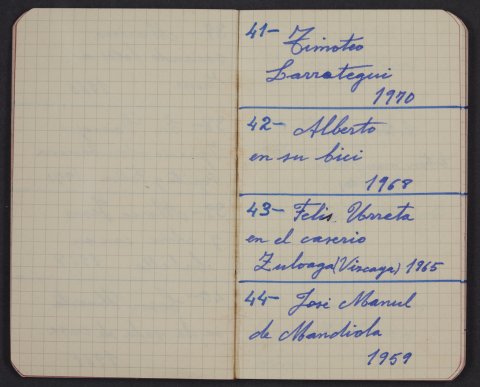 41- Timoteo
Larrategui
1970
42- Alberto
en su bici
1968
43- Felis Urreta
en el caserio
Zuloaga (Viscaga) 1965
44- Josi Manul
de Mandiola
1959